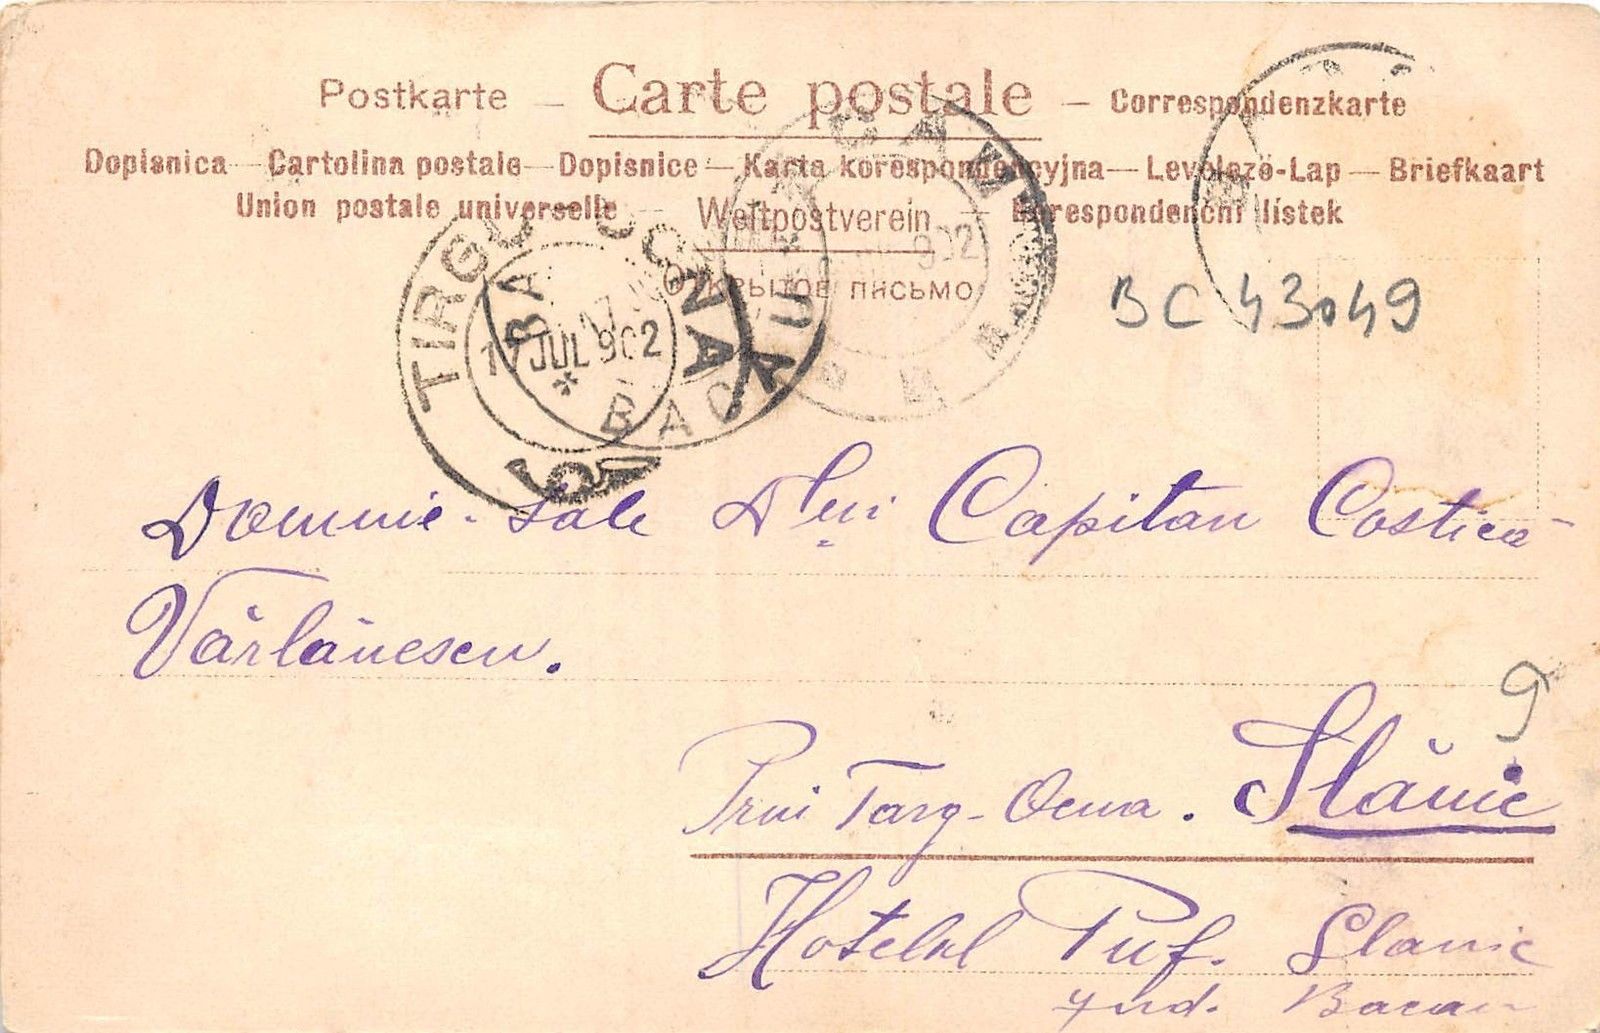 Postkarte – Carte postale – Correspondenzkarte
Dopisnica – Cartolina postale – Dopisnice – Karta korespondencyjna – Levelező-Lap – Briefkaart
Union postale universelle – Weltpostverein – Korespondenční lístek
Открытое письмо
BC 43049
TIRGU OCNA
17 JUL 902
BACAU
902
Domnie-Sale Dlui Capitan Costică
Vărlănescu.
9
Prin Targ-Ocna. Slănic
Hotelul Puf. Slanic
Jud. Bacau